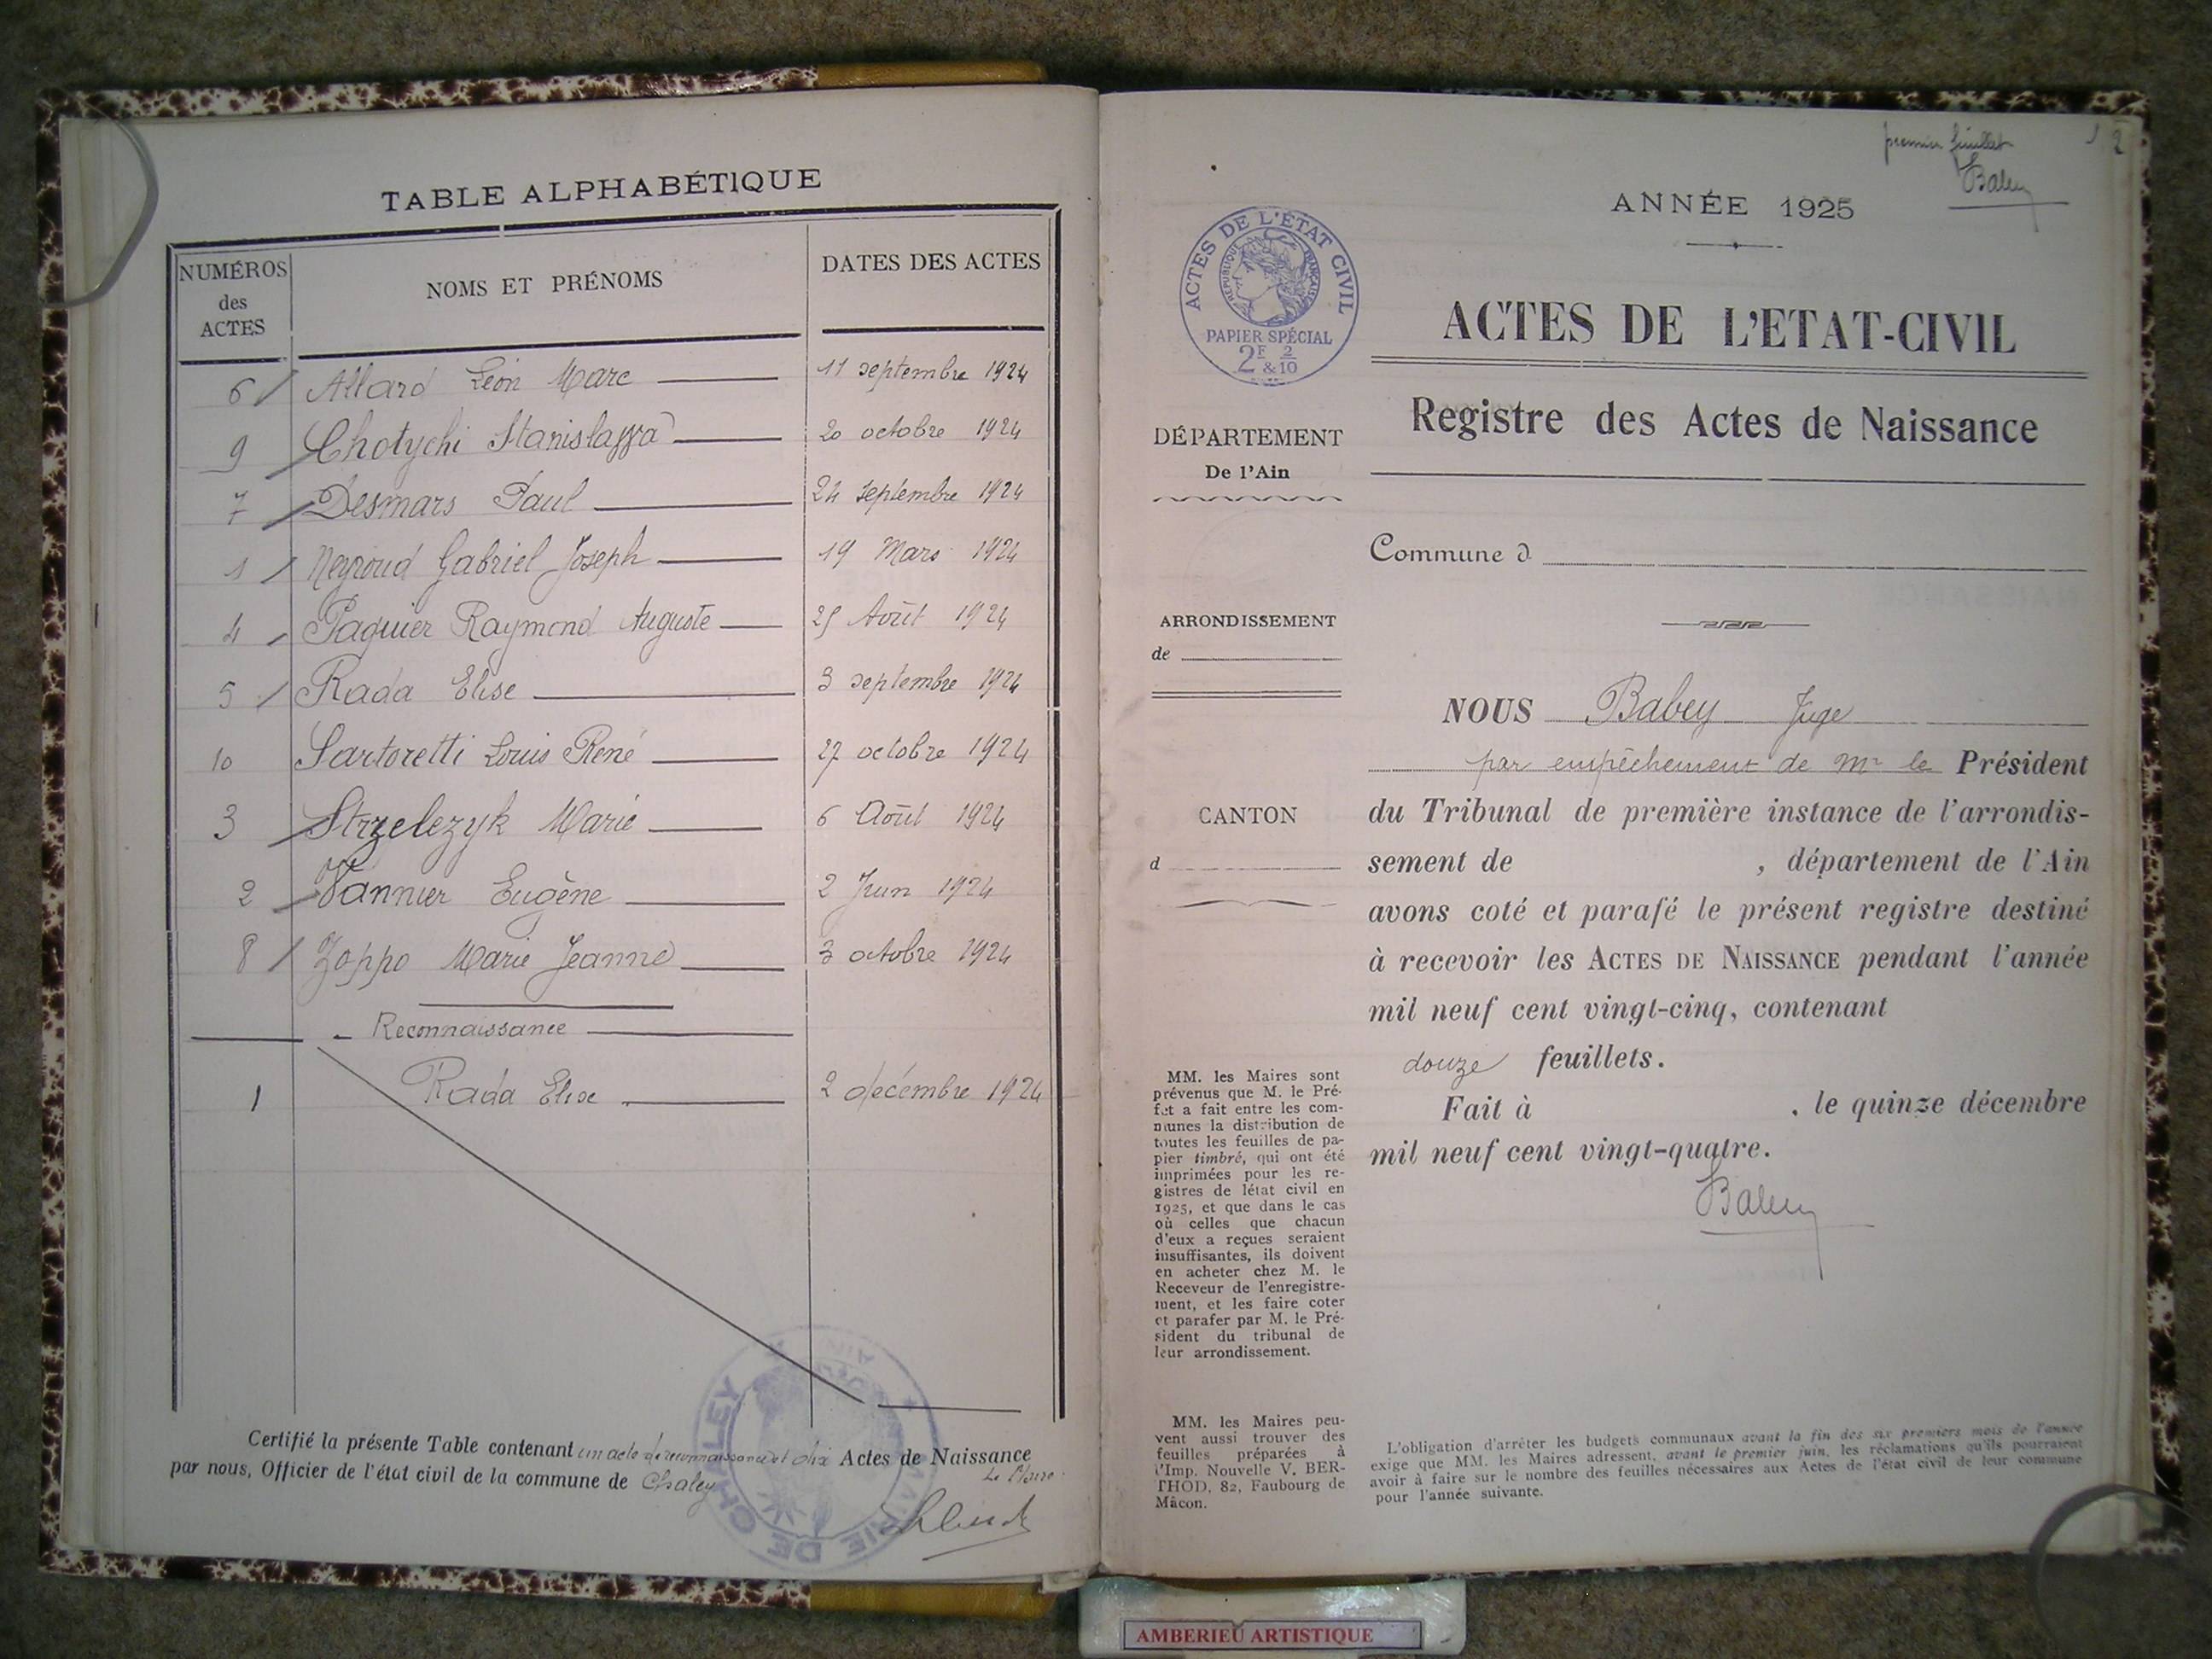 TABLE ALPHABÉTIQUE
NUMÉROS des ACTES
NOMS ET PRÉNOMS
DATES DES ACTES
6 Allard Léon Marc 11 septembre 1924
9 Chotychi 20 octobre 1924
7 Desmars Paul 24 septembre 1924
1 Gabriel Joseph 19 Mars 1924
4 Paquier Raymond Auguste 25 Août 1924
5 Rada Elise 3 septembre 1924
10 Sartoretti Louis René 27 octobre 1924
3 Strzelezyk Marie 6 Août 1924
2 Vannier Eugène 2 Juin 1924
8 Zoppo Marie Jeanne 3 octobre 1924
Reconnaissance
1 Rada Elise 2 décembre 1924
Certifié la présente Table contenant un acte de reconnaissance et dix Actes de Naissance
par nous, Officier de l'état civil de la commune de Chaley
Le Maire
MAIRIE DE CHALEY
AIN
premier feuillet
Babey
2
ANNÉE 1925
ACTES DE L'ÉTAT CIVIL
RÉPUBLIQUE FRANÇAISE
PAPIER SPÉCIAL
2F & 2/10
ACTES DE L'ETAT-CIVIL
Registre des Actes de Naissance
DÉPARTEMENT
De l'Ain
Commune d
ARRONDISSEMENT
de
CANTON
d
NOUS Babey Juge
par empêchement de Mr le Président
du Tribunal de première instance de l'arrondis-
sement de , département de l'Ain
avons coté et parafé le présent registre destiné
à recevoir les ACTES DE NAISSANCE pendant l'année
mil neuf cent vingt-cinq, contenant
douze feuillets.
Fait à , le quinze décembre
mil neuf cent vingt-quatre.
Babey
MM. les Maires sont
prévenus que M. le Pré-
fet a fait entre les com-
munes la distribution de
toutes les feuilles de pa-
pier timbré, qui ont été
imprimées pour les re-
gistres de létat civil en
1925, et que dans le cas
où celles que chacun
d'eux a reçues seraient
insuffisantes, ils doivent
en acheter chez M. le
Receveur de l'enregistre-
ment, et les faire coter
et parafer par M. le Pré-
sident du tribunal de
leur arrondissement.
MM. les Maires peu-
vent aussi trouver des
feuilles préparées à
l'Imp. Nouvelle V. BER-
THOD, 82, Faubourg de
Mâcon.
L'obligation d'arrêter les budgets communaux avant la fin des six premiers mois de l'année
exige que MM. les Maires adressent, avant le premier juin, les réclamations qu'ils pourraient
avoir à faire sur le nombre des feuilles nécessaires aux Actes de l'état civil de leur commune
pour l'année suivante.
AMBERIEU ARTISTIQUE